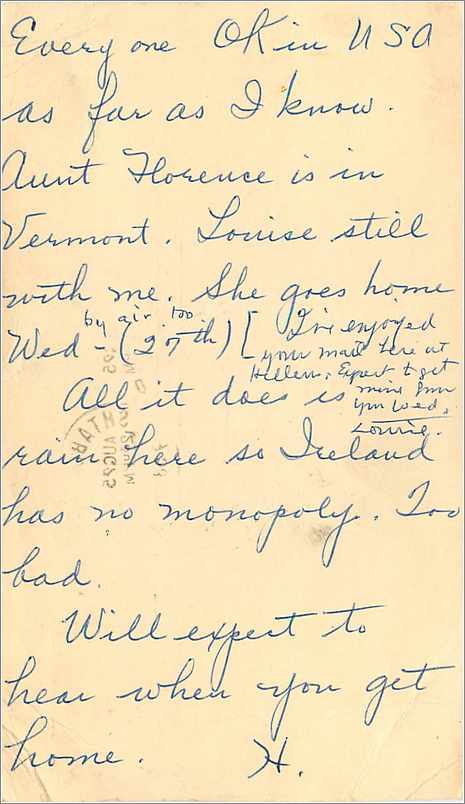 Every one OK in USA
as far as I know.
Aunt Florence is in
Vermont. Louise still
with me. She goes home
by air too
Wed - (27th) [ I've enjoyed
your mail here at
Helen's. Expect to get
All it does is mine from
you Wed.
Louise.
rain here so Ireland
has no monopoly. Too
bad.
Will expect to
hear when you get
home. H.
AUG 25